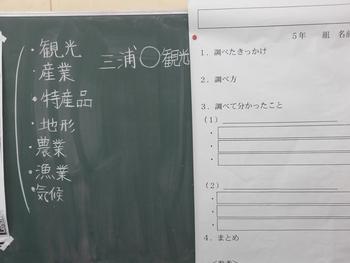 ・観光
・産業
・特産品
・地形
・農業
・漁業
・気候
三浦〇観光
5年　組　名前
1．調べたきっかけ
2．調べ方
3．調べて分かったこと
(1)
・
・
・
(2)
・
・
4．まとめ